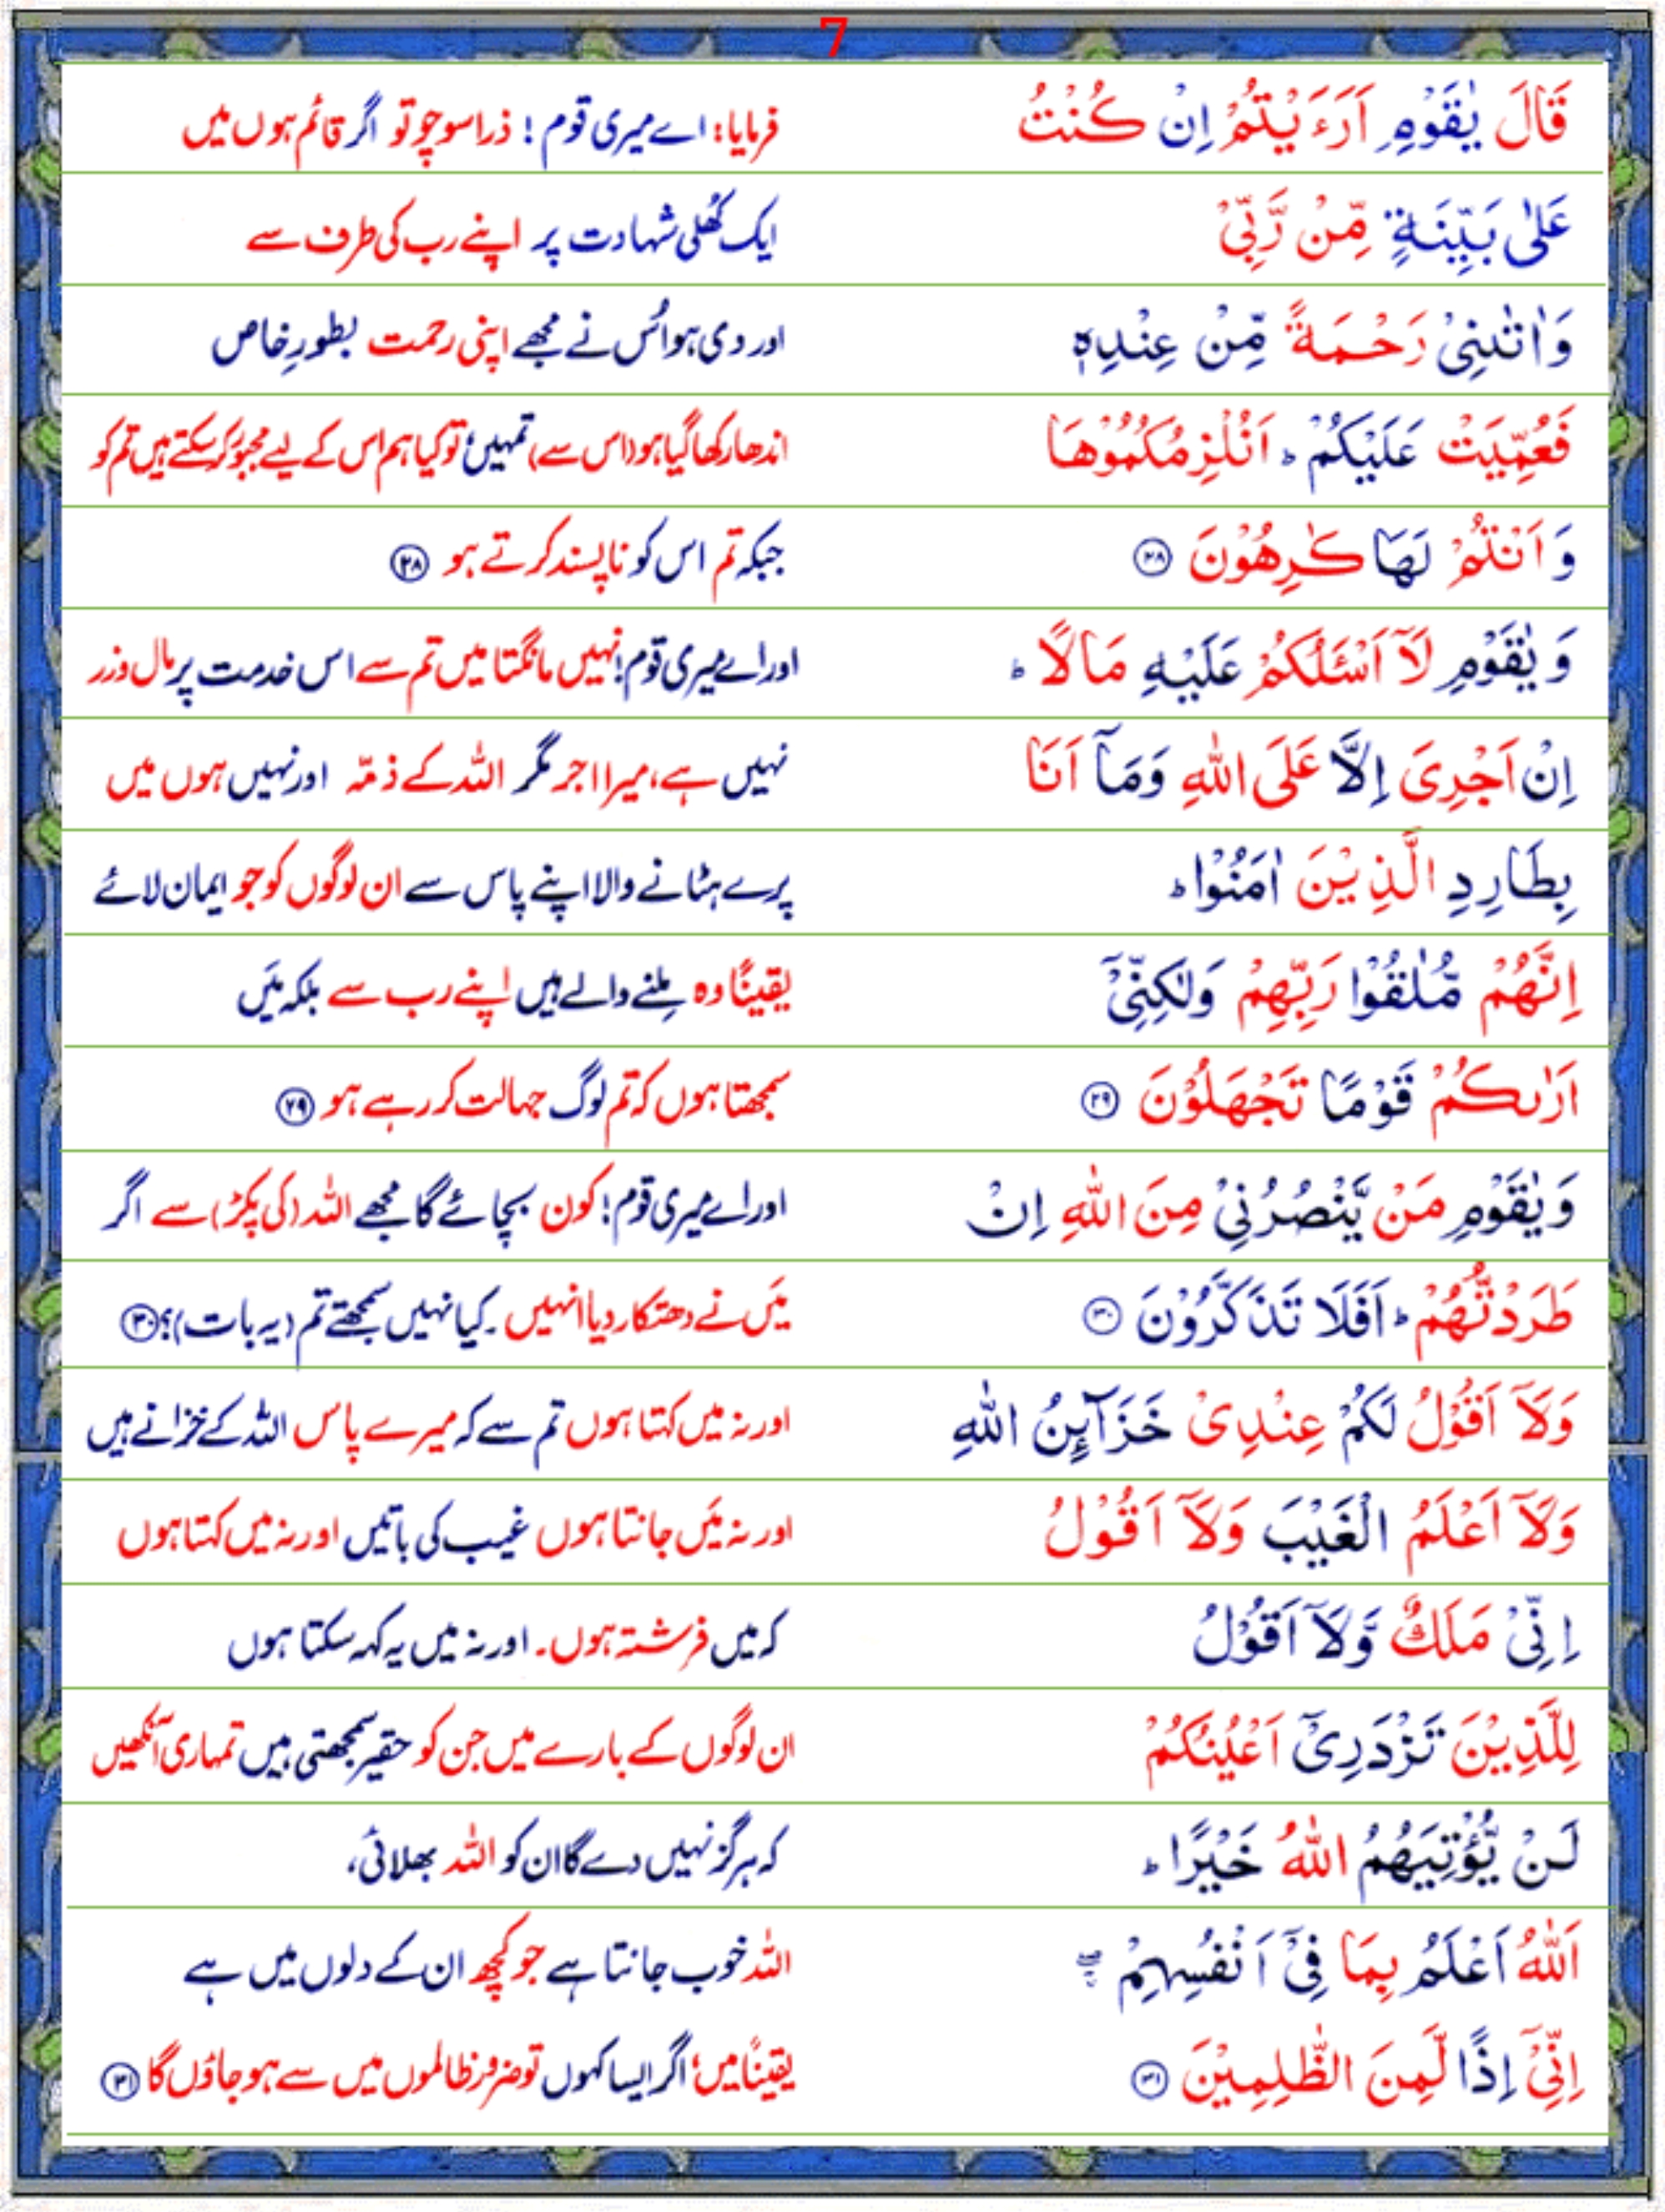 7
قَالَ يٰقَوْمِ اَرَءَيْتُمْ اِنْ كُنْتُ فرمایا: اے میری قوم! ذرا سوچو تو اگر قائم ہوں میں
عَلٰى بَيِّنَةٍ مِّنْ رَّبِّىْ ایک کُھلی شہادت پر اپنے رب کی طرف سے
وَاٰتٰىنِىْ رَحْمَةً مِّنْ عِنْدِهٖ اور دی ہو اُس نے مجھے اپنی رحمت بطورِ خاص
فَعُمِّيَتْ عَلَيْكُمْ ؕ اَنُلْزِمُكُمُوْهَا اندھا رکھا گیا ہو (اس سے) تمہیں؛ تو کیا ہم اس کے لیے مجبور کر سکتے ہیں تم کو
وَاَنْتُمْ لَهَا كٰرِهُوْنَ ﴿۲۸﴾ جبکہ تم اس کو ناپسند کرتے ہو ﴿۲۸﴾
وَيٰقَوْمِ لَآ اَسْئَلُكُمْ عَلَيْهِ مَالًا ؕ اور اے میری قوم! نہیں مانگتا میں تم سے اس خدمت پر مال و زر
اِنْ اَجْرِىَ اِلَّا عَلَى اللّٰهِ وَمَآ اَنَا نہیں ہے، میرا اجر مگر اللہ کے ذمّہ اور نہیں ہوں میں
بِطَارِدِ الَّذِيْنَ اٰمَنُوْا ؕ پرے ہٹانے والا اپنے پاس سے ان لوگوں کو جو ایمان لائے
اِنَّهُمْ مُّلٰقُوْا رَبِّهِمْ وَلٰكِنِّىْٓ یقینًا وہ مِلنے والے ہیں اپنے رب سے بلکہ مَیں
اَرٰىكُمْ قَوْمًا تَجْهَلُوْنَ ﴿۲۹﴾ سمجھتا ہوں کہ تم لوگ جہالت کر رہے ہو ﴿۲۹﴾
وَيٰقَوْمِ مَنْ يَّنْصُرُنِىْ مِنَ اللّٰهِ اِنْ اور اے میری قوم! کون بچائے گا مجھے اللہ (کی پکڑ) سے اگر
طَرَدْتُّهُمْ ؕ اَفَلَا تَذَكَّرُوْنَ ﴿۳۰﴾ مَیں نے دھتکار دیا انہیں۔ کیا نہیں سمجھتے تم (یہ بات)؟ ﴿۳۰﴾
وَلَآ اَقُوْلُ لَكُمْ عِنْدِىْ خَزَآئِنُ اللّٰهِ اور نہ میں کہتا ہوں تم سے کہ میرے پاس اللہ کے خزانے ہیں
وَلَآ اَعْلَمُ الْغَيْبَ وَلَآ اَقُوْلُ اور نہ مَیں جانتا ہوں غیب کی باتیں اور نہ میں کہتا ہوں
اِنِّىْ مَلَكٌ وَّلَآ اَقُوْلُ کہ میں فرشتہ ہوں۔ اور نہ میں یہ کہہ سکتا ہوں
لِلَّذِيْنَ تَزْدَرِىْٓ اَعْيُنُكُمْ ان لوگوں کے بارے میں جن کو حقیر سمجھتی ہیں تمہاری آنکھیں
لَنْ يُّؤْتِيَهُمُ اللّٰهُ خَيْرًا ؕ کہ ہرگز نہیں دے گا ان کو اللہ بھلائی،
اَللّٰهُ اَعْلَمُ بِمَا فِىْٓ اَنْفُسِهِمْ ۖۚ اللہ خوب جانتا ہے جو کچھ ان کے دلوں میں ہے
اِنِّىْٓ اِذًا لَّمِنَ الظّٰلِمِيْنَ ﴿۳۱﴾ یقینًا میں؛ اگر ایسا کہوں تو ضرور ظالموں میں سے ہو جاؤں گا ﴿۳۱﴾